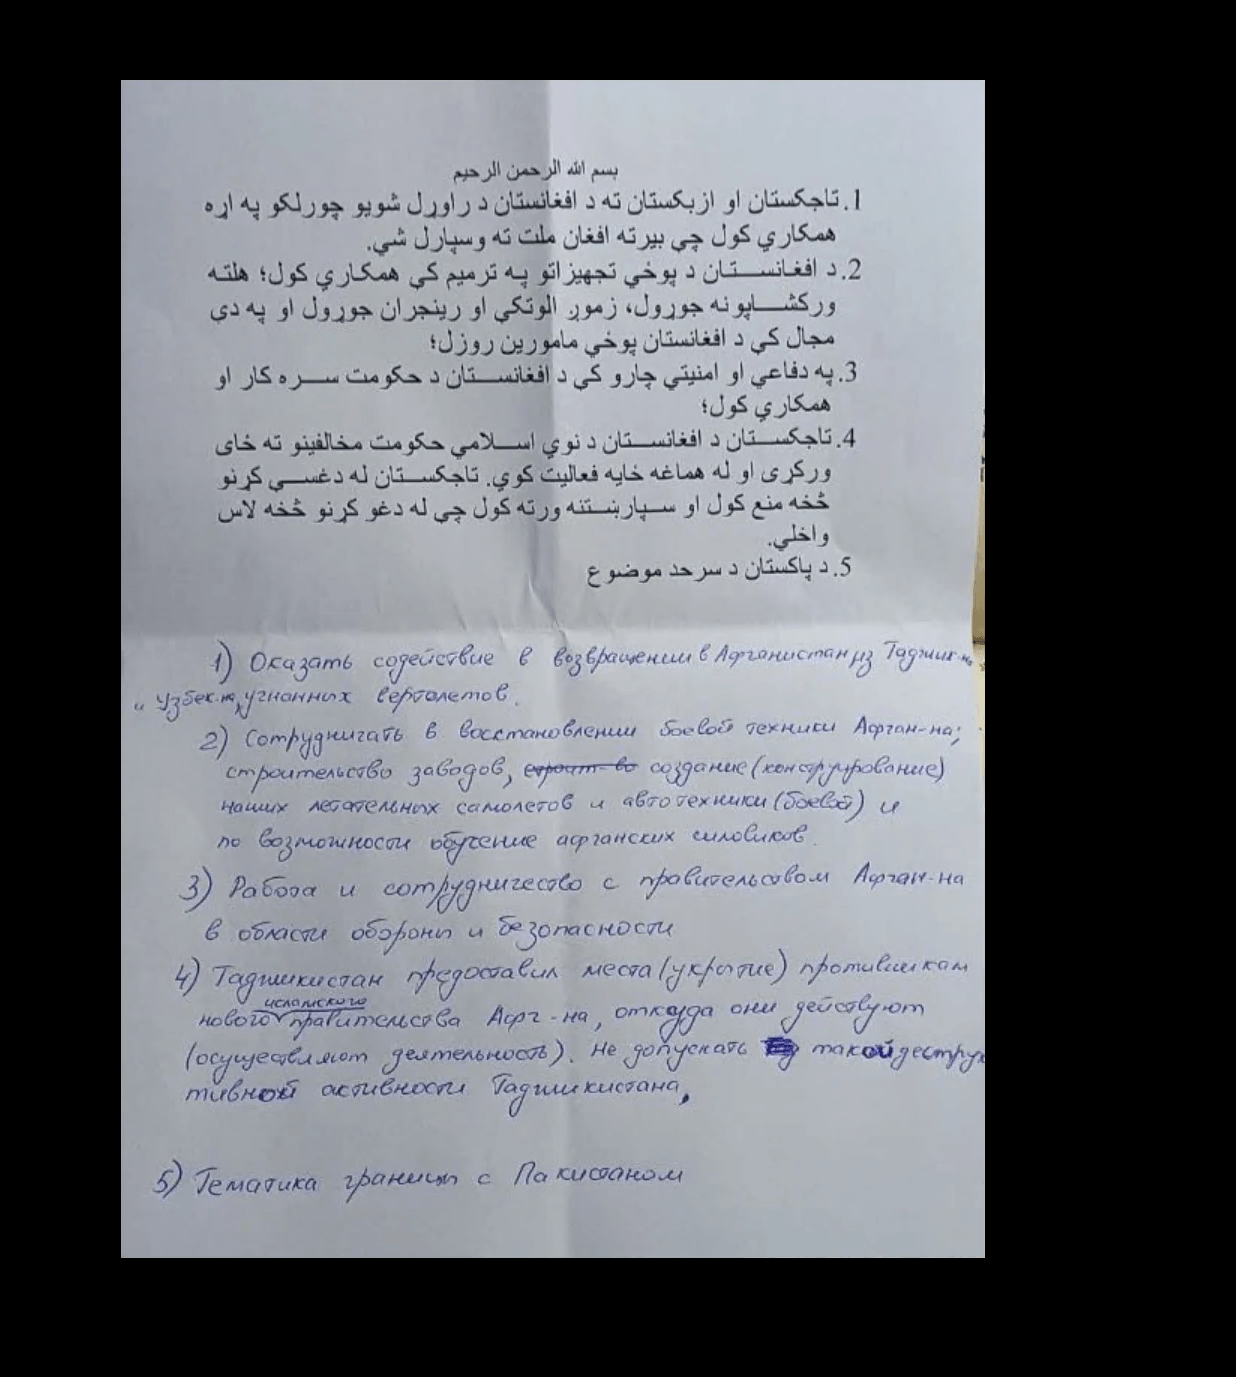 بسم الله الرحمن الرحيم
1. تاجکستان او ازبکستان ته د افغانستان د راوړل شويو چورلکو په اړه
همکاري کول چي بيرته افغان ملت ته وسپارل شي.
2. د افغانستان د پوځي تجهيزاتو په ترميم کي همکاري کول؛ هلته
ورکشاپونه جوړول، زموږ الوتکي او رينجران جوړول او په دې
مجال کي د افغانستان پوځي مامورين روزل؛
3. په دفاعي او امنيتي چارو کي د افغانستان د حکومت سره کار او
همکاري کول؛
4. تاجکستان د افغانستان د نوي اسلامي حکومت مخالفينو ته ځای
ورکړی او له هماغه ځايه فعاليت کوي. تاجکستان له دغسي کړنو
څخه منع کول او سپارښتنه ورته کول چي له دغو کړنو څخه لاس
واخلي.
5. د پاکستان د سرحد موضوع
1) Оказать содействие в возвращении в Афганистан из Таджик-на
и Узбек-на, угнанных вертолетов.
2) Сотрудничать в восстановлении боевой техники Афган-на;
строительство заводов, строит-во создание (конструирование)
наших летательных самолетов и автотехники (боевой) и
по возможности обучение афганских силовиков.
3) Работа и сотрудничество с правительством Афган-на
в области обороны и безопасности
4) Таджикистан предоставил места (укрытие) противникам
исламского
нового правительства Афг-на, откуда они действуют
(осуществляют деятельность). Не допускать такой деструк
тивной активности Таджикистана,
5) Тематика границы с Пакистаном